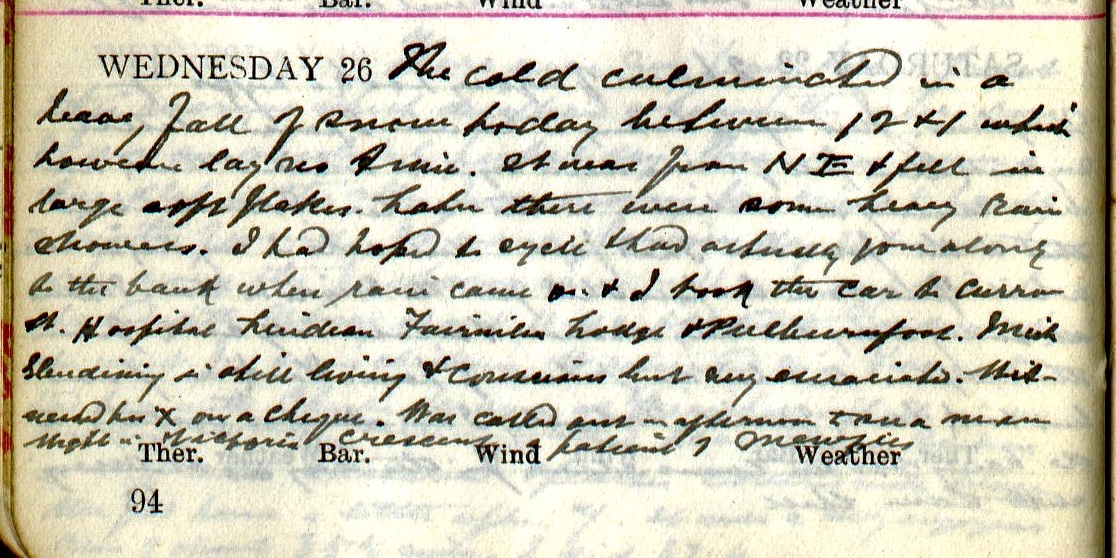 Ther. Bar. Wind Weather
WEDNESDAY 26 The cold culminated in a
heavy fall of snow today between 12 & 1 which
however lay no time. It was from NE & fell in
large soft flakes. Later there were some heavy rain
showers. I had hoped to cycle & had actually gone along
to the bank when rain came on & I took the car to
St. Hospital Lodge &
is still living & conscious but very emaciated. Wit-
nessed her X on a cheque. Was called out in afternoon to see a
in Victoria Crescent a patient of
Ther. Bar. Wind Weather
94